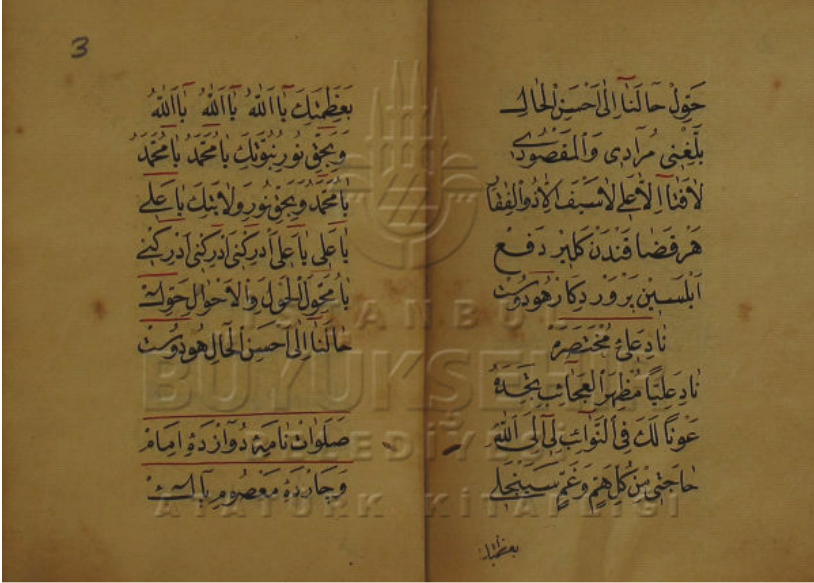 حَوِّلْ حَالَنَا اِلٰى اَحْسَنِ الْحَالِ
بَلِّغْنِى مُرَادِى وَالْمَقْصُودِى
لَا فَتَا اِلَّا عَلِى لَا سَيْفَ اِلَّا ذُو الْفِقَارْ
هَرْ قَضَا قَنْدَنْ كَلِيرْ دَفْعْ
اَيْلَسِينْ بَرْوَرْدِكَارْ هُو دُوسْتْ
نَادِ عَلِىِّ مُخْتَصَرَهْ
نَادِ عَلِيًّا مُظْهِرَ الْعَجَائِبِ تَجِدْهُ
عَوْنًا لَكَ فِى النَّوَائِبِ لِى اِلَى اللّٰهِ
حَاجَتِى مِنْ كُلِّ هَمٍّ وَغَمٍّ سَيَنْجَلِى
بعظمتك
3
بِعَظَمَتِكَ يَا اَللّٰهُ يَا اَللّٰهُ يَا اَللّٰهُ
وَبِحَقِّ نُورِ نُبُوَّتِكَ يَا مُحَمَّدُ يَا مُحَمَّدُ
يَا مُحَمَّدُ وَبِحَقِّ نُورِ وَلَايَتِكَ يَا عَلِى
يَا عَلِى يَا عَلِى اَدْرِكْنِى اَدْرِكْنِى اَدْرِكْنِى
يَا مُحَوِّلَ الْحَوْلِ وَالْاَحْوَالِ حَوِّلْ
حَالَنَا اِلٰى اَحْسَنِ الْحَالِ هُو دُوسْتْ
صَلَوَاتْ نَامَهِ دُوَازْدَهْ اِمَامْ
وَچَارْدَهْ مَعْصُومِ پَاكْ
ISTANBUL
BÜYÜKŞEHİR
BELEDİYESİ
ATATÜRK KİTAPLIĞI